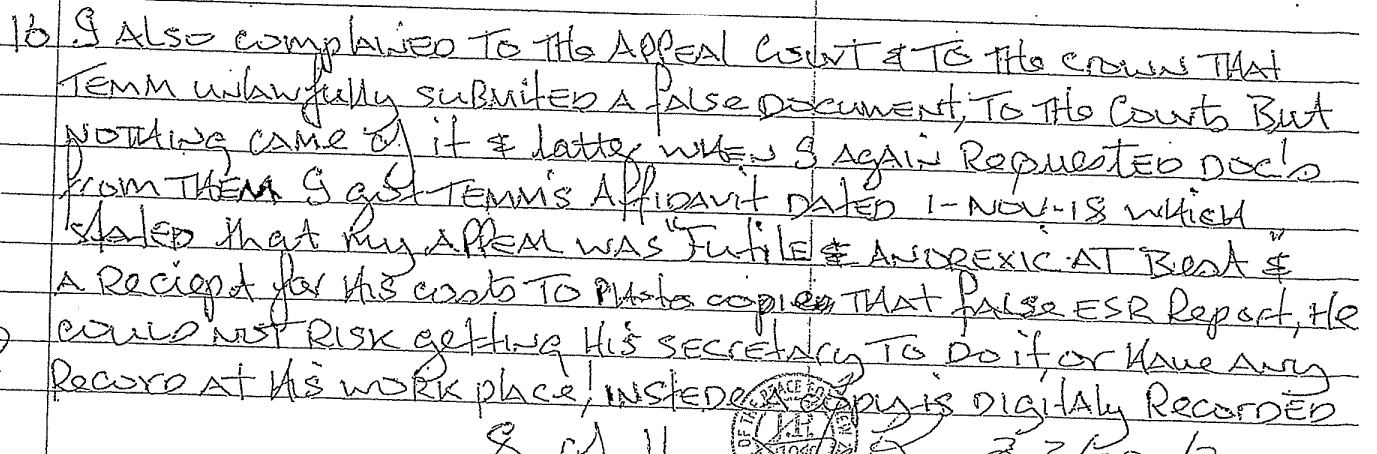 16 I Also complained To The Appeal Court & To The crown That
Temm unlawfully submited A false Document, To The Courts But
Nothing came of it & latter when I again Requested Doc's
from Them I got Temm's Affidavit Dated 1-Nov-18 which
stated that my Appeal was "Futile & Anorexic At Best" &
A Reciept for His costs To Photo copies That false ESR Report, He
could not Risk getting His secretary To Do it, or Have Any
Record At His work place! insted A copy is Digitaly Recorded
8 of 11